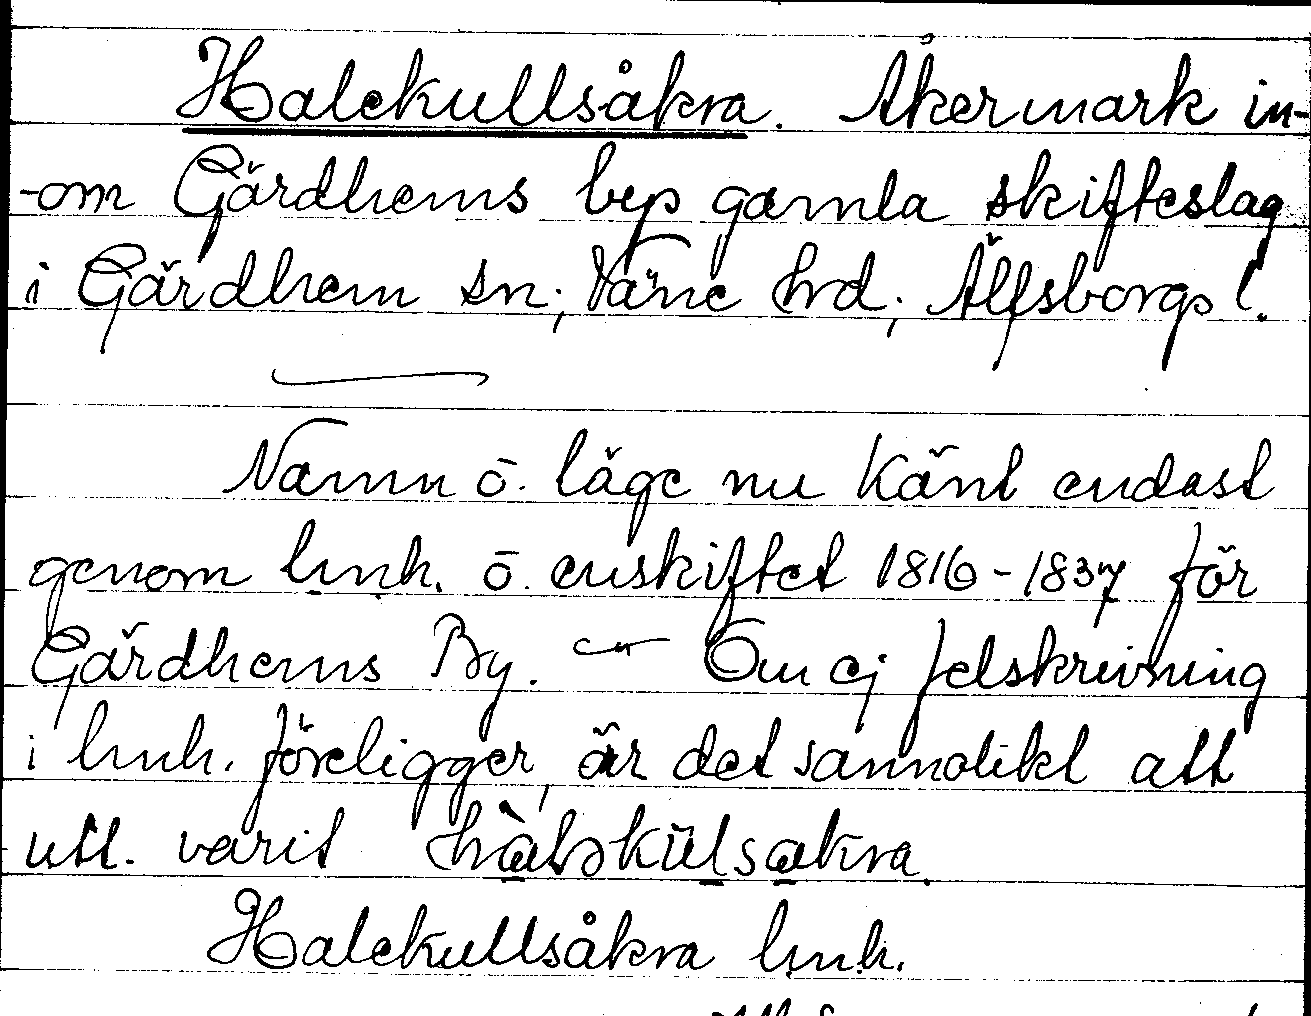 Halekullsåkra. Åkermark in-
-om Gärdhems bys gamla skifteslag
i Gärdhem sn; Väne hrd; Älfsborgs l.
Namn o. läge nu känt endast
genom lmh. o. enskiftet 1816-1837 för
Gärdhems By. — Om ej felskrivning
i lmh. föreligger, är det sannolikt att
utt. varit
Halekullsåkra lmh.